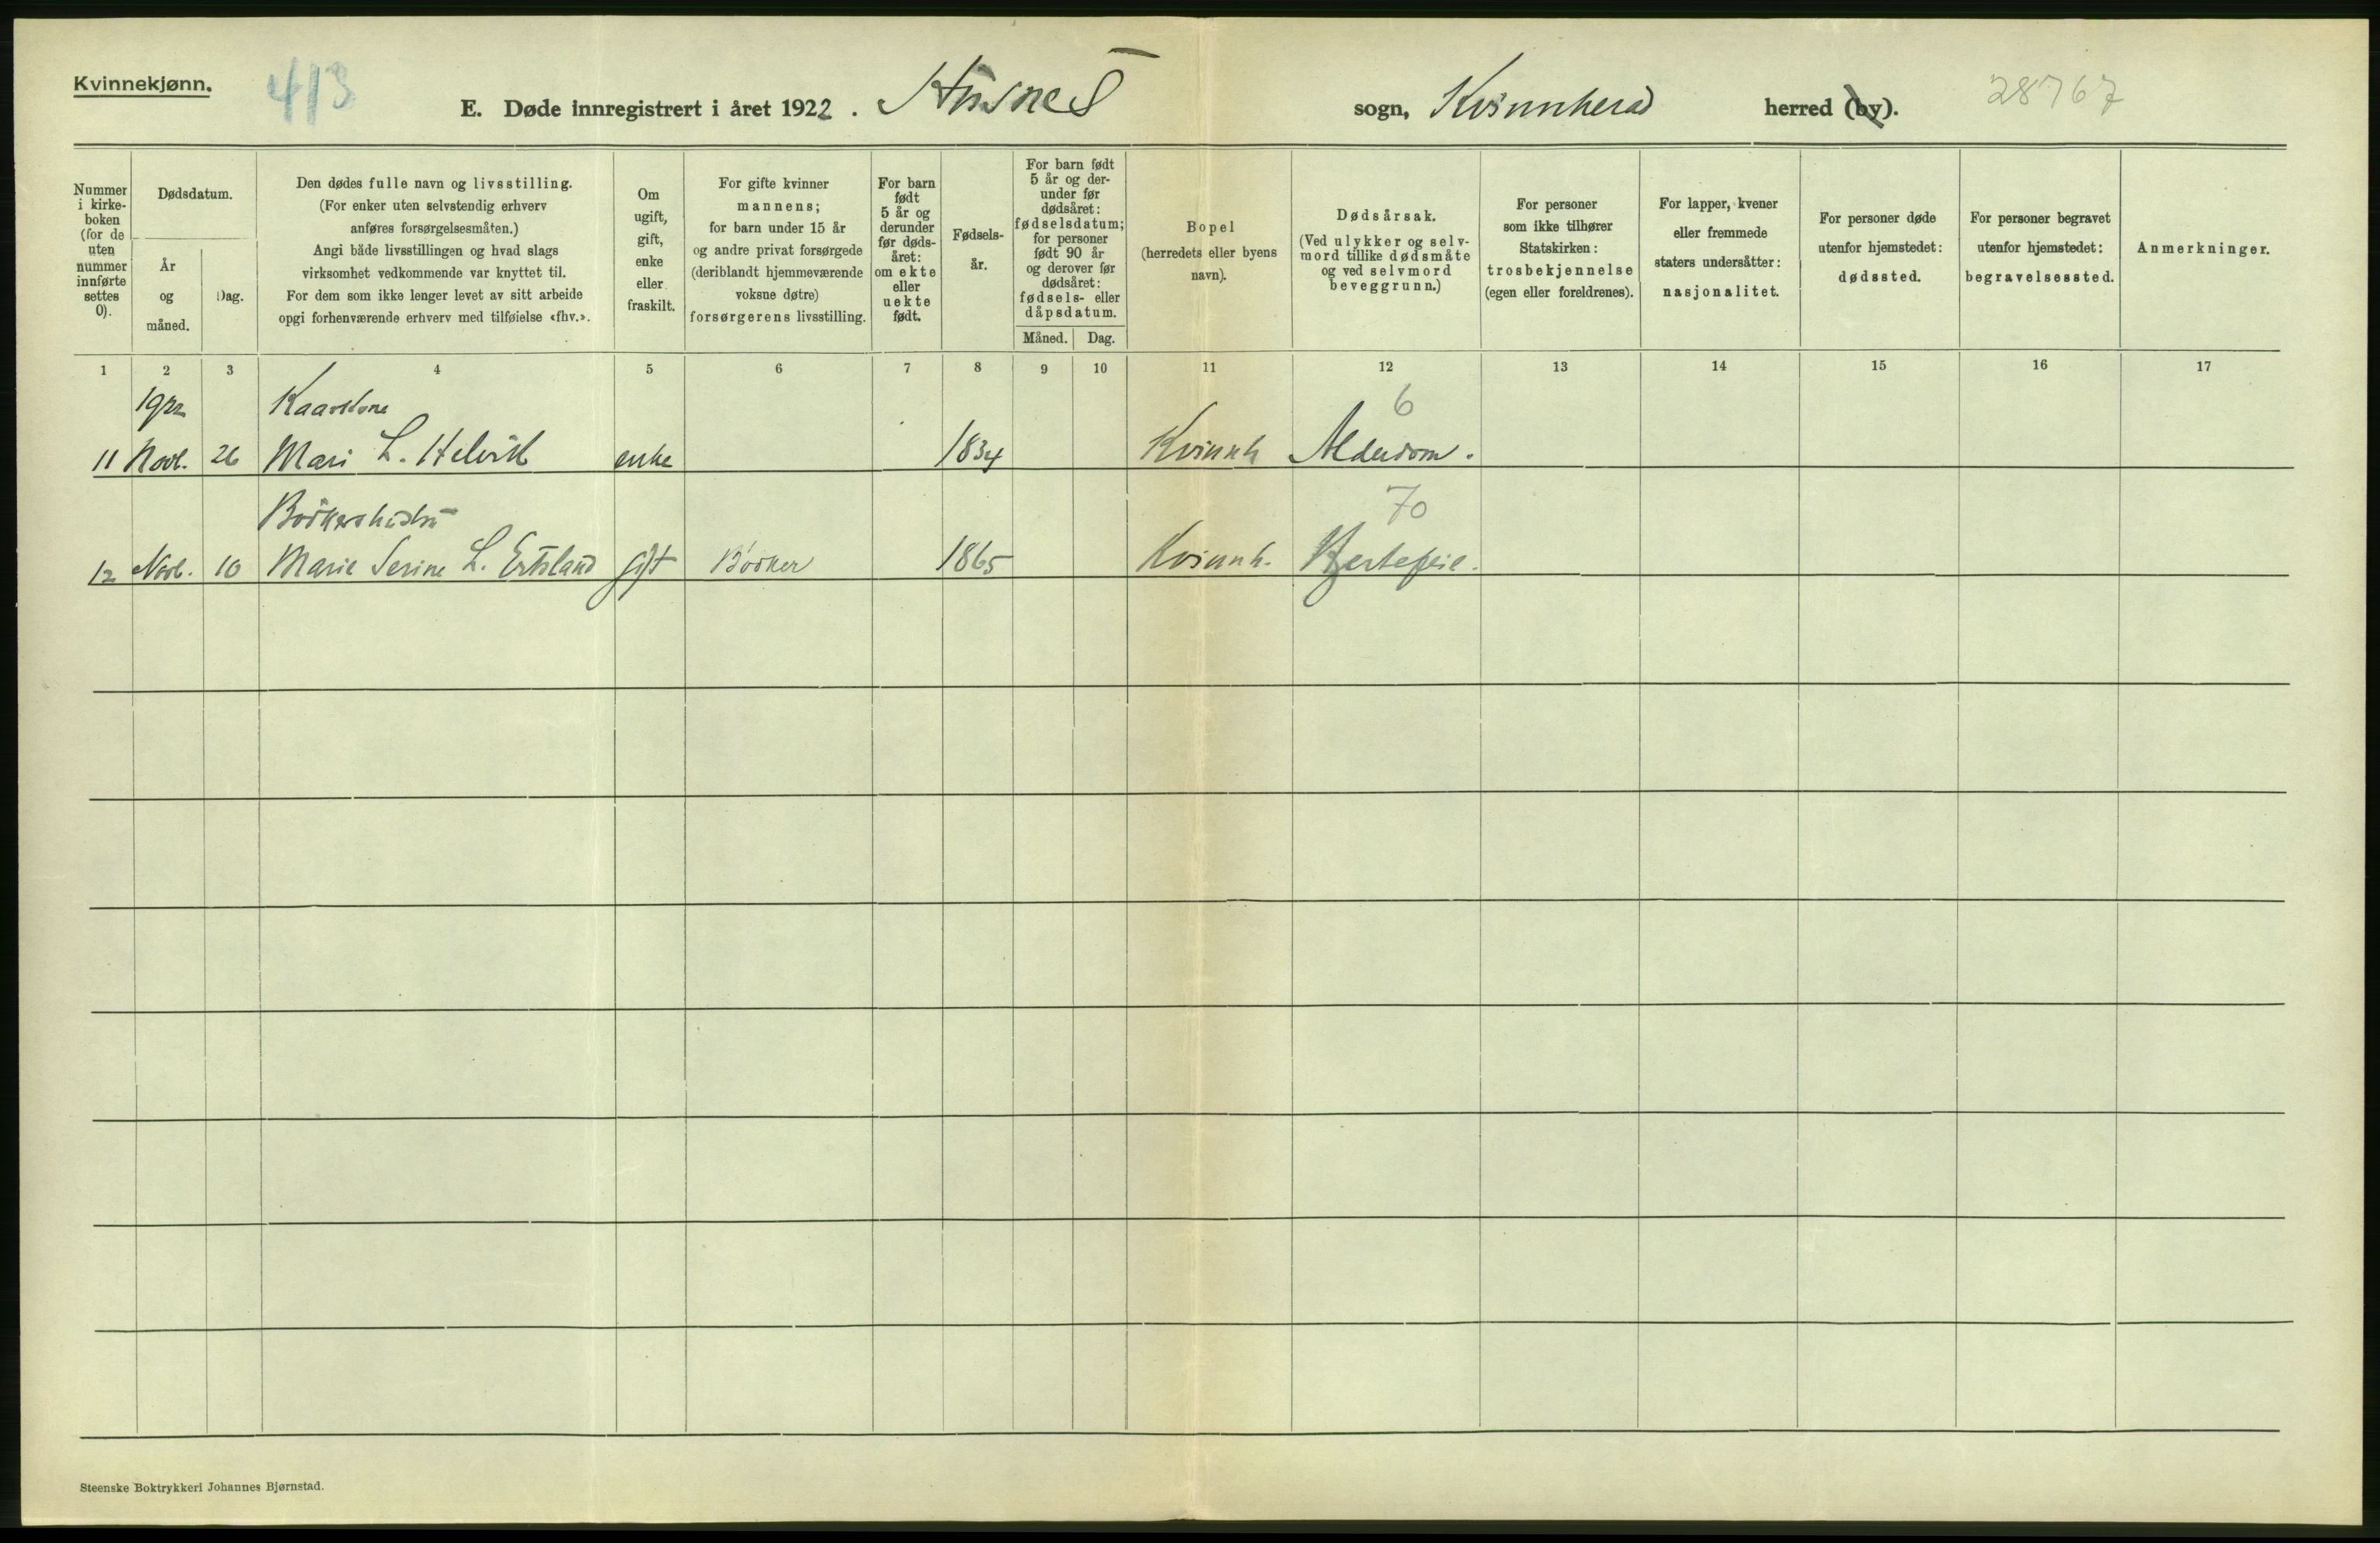 Kvinnekjønn.
413
E. Døde innregistrert i året 1922. Husnes sogn, Kvinnherad herred (by).
28767
Nummer i kirke-boken (for de uten nummer innførte settes 0).
Dødsdatum.
År og måned.
Dag.
Den dødes fulle navn og livsstilling.
(For enker uten selvstendig erhverv
anføres forsørgelsesmåten.)
Angi både livsstillingen og hvad slags
virksomhet vedkommende var knyttet til.
For dem som ikke lenger levet av sitt arbeide
opgi forhenværende erhverv med tilføielse «fhv.».
Om ugift, gift, enke eller fraskilt.
For gifte kvinner
mannens;
for barn under 15 år
og andre privat forsørgede
(deriblandt hjemmeværende
voksne døtre)
forsørgerens livsstilling.
For barn født 5 år og derunder før døds-året: om ekte eller uekte født.
Fødsels-år.
For barn født 5 år og der-under før dødsåret: fødselsdatum; for personer født 90 år og derover før dødsåret: fødsels- eller dåpsdatum.
Måned. Dag.
Bopel
(herredets eller byens
navn).
Dødsårsak.
(Ved ulykker og selv-
mord tillike dødsmåte
og ved selvmord
beveggrunn.)
For personer
som ikke tilhører
Statskirken:
trosbekjennelse
(egen eller foreldrenes).
For lapper, kvener
eller fremmede
staters undersåtter:
nasjonalitet.
For personer døde
utenfor hjemstedet:
dødssted.
For personer begravet
utenfor hjemstedet:
begravelsessted.
Anmerkninger.
1 2 3 4 5 6 7 8 9 10 11 12 13 14 15 16 17
1922 6
11 Novb. 26 Mari L. Helvik enke 1834 Kvinnh Alderdom.
70
12 Novb. 10 Marie Serine L. gift Bödker 1865 Kvinnh. Hjertefeil.
Steenske Boktrykkeri Johannes Bjørnstad.